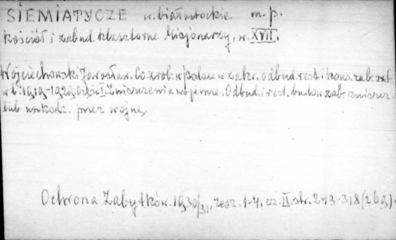 SIEMIATYCZE w. białostockie m. p.
kościół i zabud. klasztorne Misjonarzy, w. XVII.
Wojciechowski Jarosław. Co zrob. w Polsce w zakr. odbud. rest. i kons. zab.
w l. 1919-1929. Zniszczenia wojenne. Odbud. i rest. budow. zab. zniszcz.
lub uszkodz. przez wojnę,
Ochrona Zabytków. 1930/31, zesz. 1-4, cz. II. str. 243-318 (260,).